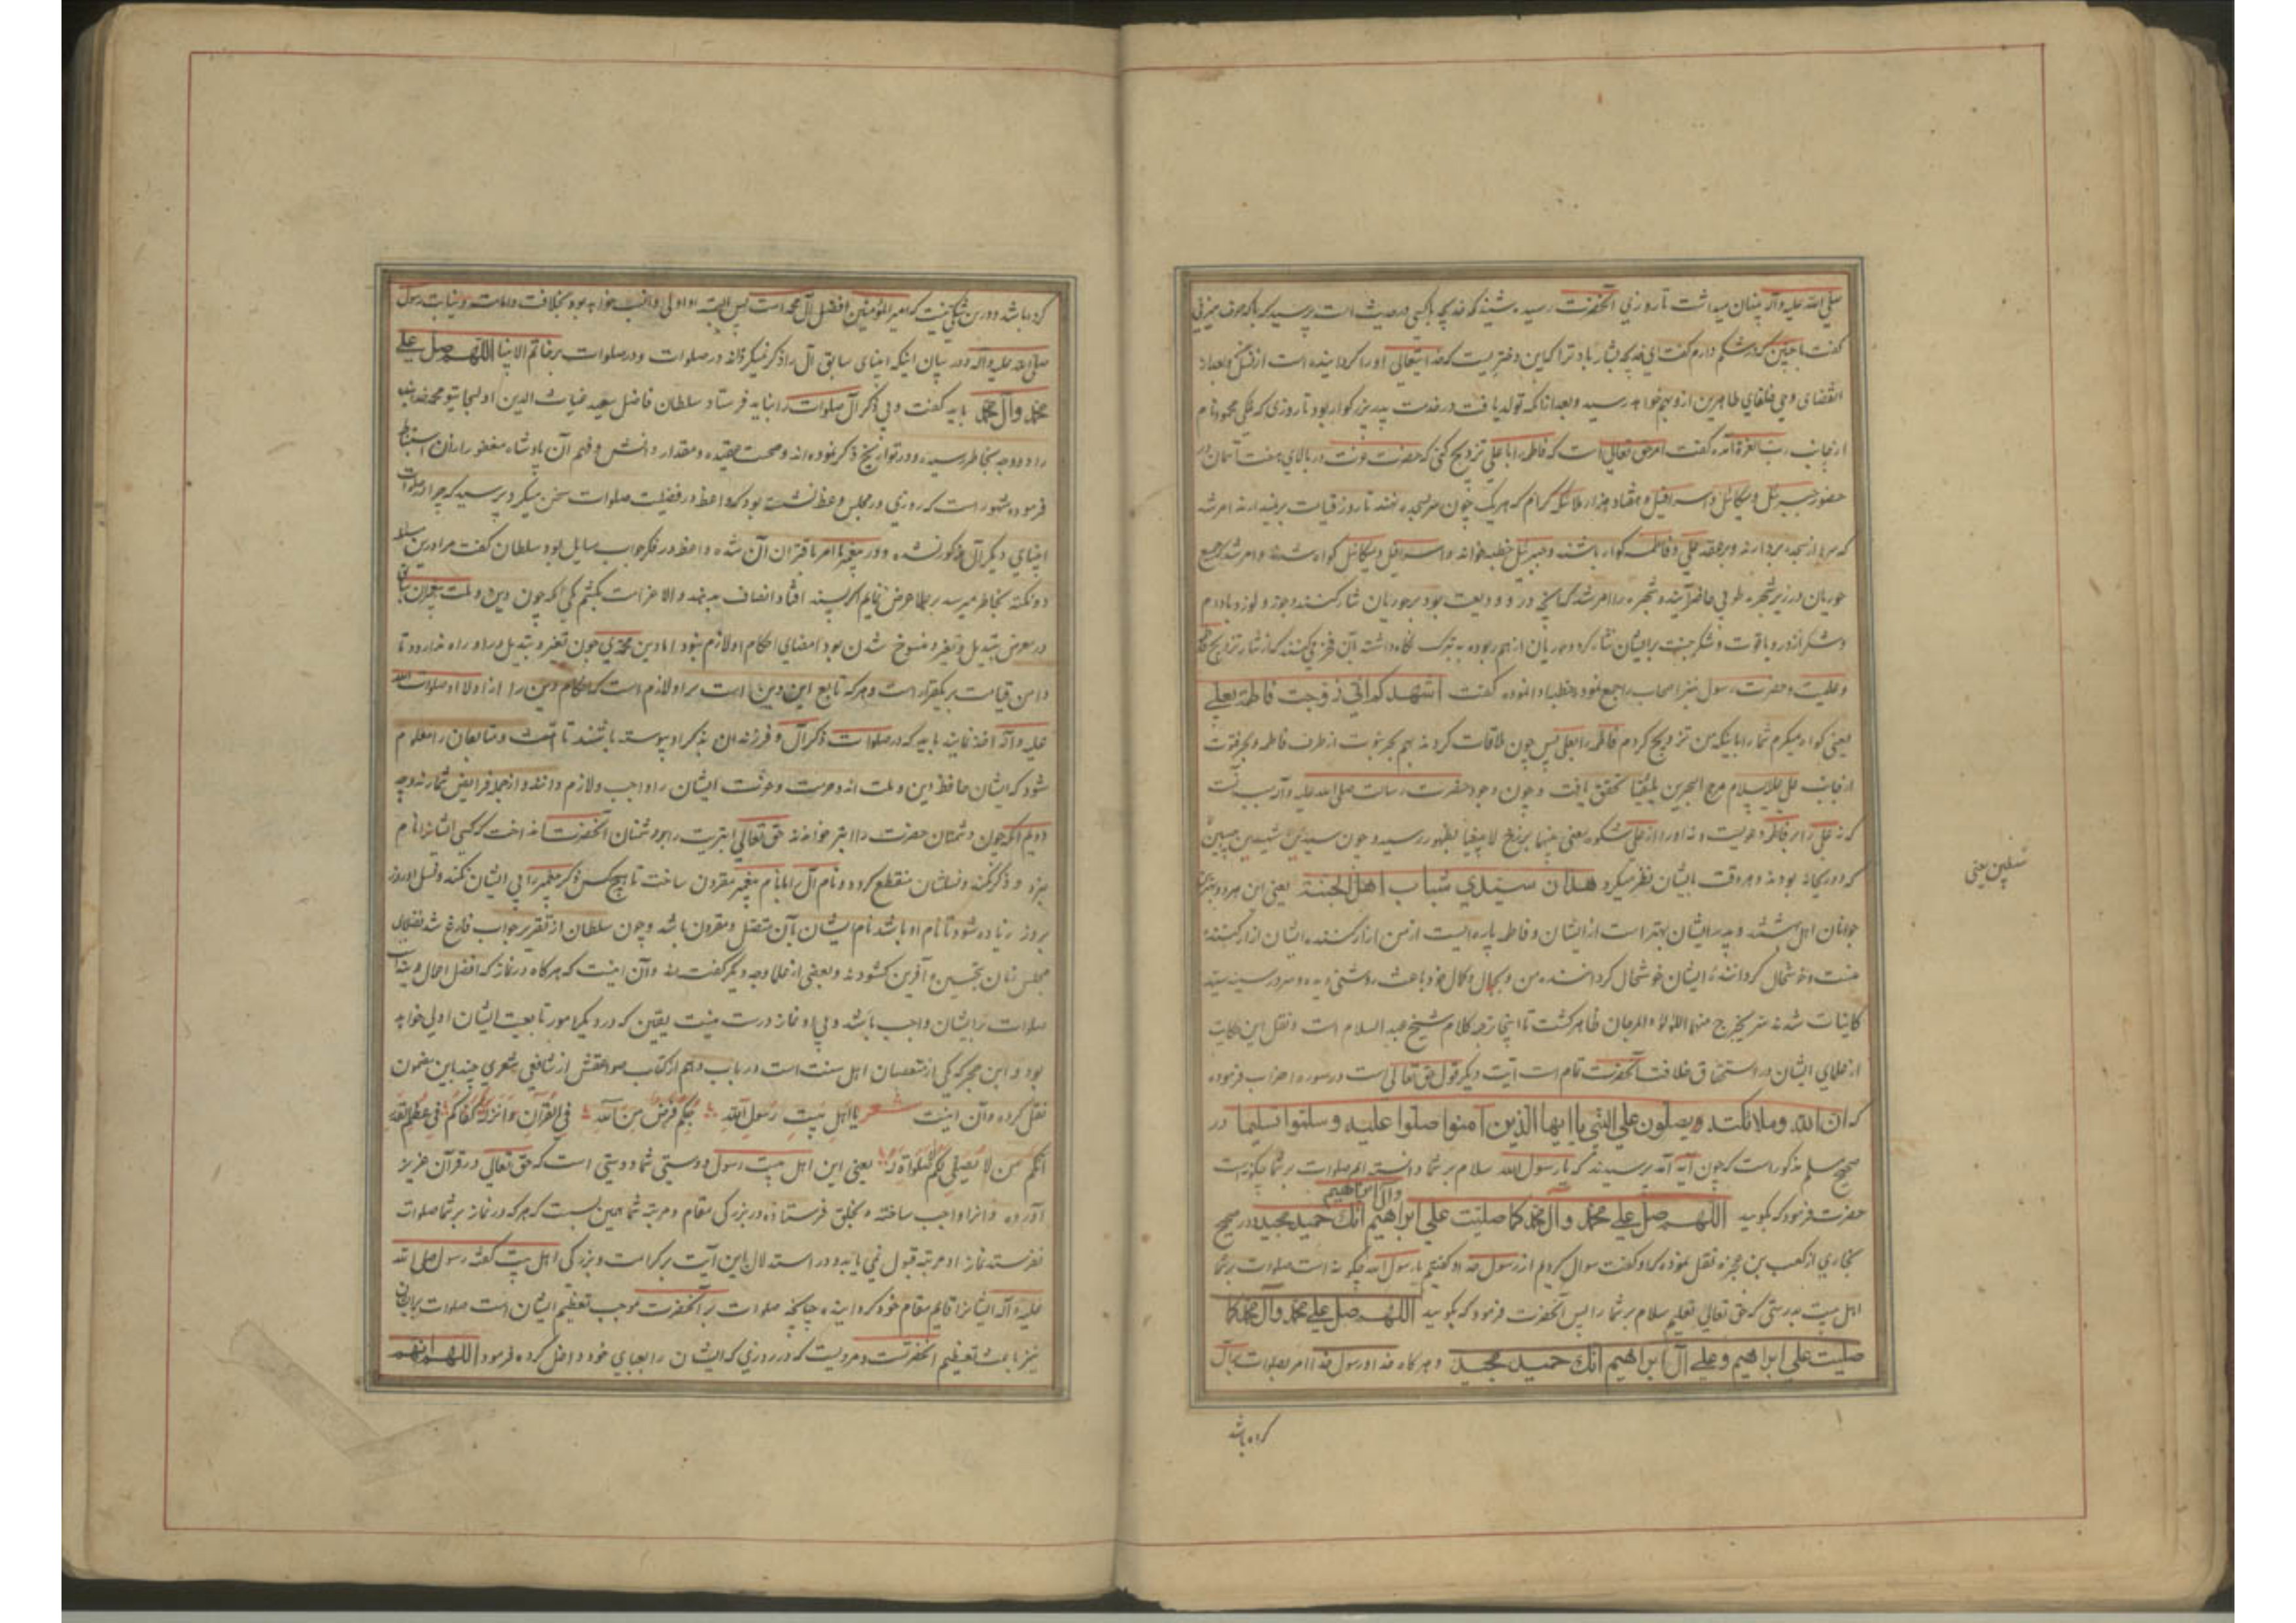 صلی الله علیه وآله پنهان میداشت تا روزی آنحضرت رسید شنید که خدیجه با کسی در حدیث است پرسید که با که حرف میزنی
گفت با جنین که در شکم دارم گفت ای خدیجه بشارت باد ترا که این دختریست که خدایتعالی او را گردانیده است از نسل
انقضای وحی خلفای طاهرین ازو بهم خواهد رسید وبعد از آنکه تولد یافت در خدمت پدر بزرگوار بود تا روزی که ملکی محمود نام
از جانب رب العزة آمده گفت امر حق تعالی است که فاطمه را با علی تزویج کنی که حضرت عزت در بالای هفت آسمان
حضور جبرئیل ومیکائیل واسرافیل وهفتاد هزار ملائکه کرام که هریک چون سر بسجده نهند تا روز قیامت برنیدارند امر شد
که سر از سجده بردارند وبر عقد علی وفاطمه گواه باشند وجبرئیل خطبه خواند واسرافیل ومیکائیل گواه شدند وامر شد که جمیع
حوریان در زیر شجره طوبی حاضر آیند وشجره را امر شد که آنچه در او ودیعت بود بر حوریان نثار کند
وشکر از در ویاقوت وشکر جنت برایشان نثار کرد وحوریان از هم ربوده به تبرک نگاه داشته بآن فخر می کنند که از نثار تزویج
وعلیست وحضرت رسول نیز اصحاب را جمع نموده وخطبه ادا نموده گفت اشهدکم انی زوجت فاطمة بعلی
یعنی گواه میگیرم شما را باینکه من تزویج کردم فاطمه را بعلی پس چون ملاقات کردند بهم بحر نبوت از طرف فاطمه وبحر فتوت
از جانب علی علیه السلام مرج البحرین یلتقیان تحقق یافت وچون وجود حضرت رسالت صلی الله علیه وآله سبب
که نه علی را بر فاطمه دعویست ونه او را از علی شکوه یعنی بینهما برزخ لا یبغیان بظهور رسید وچون سیدین شهیدین
که دو ریحانه بودند وهر وقت بایشان نظر میکرد هذان سیدی شباب اهل الجنة یعنی این هر دو بهترین
جوانان اهل بهشتند وپدر ایشان بهتر است از ایشان وفاطمه پاره ایست از من آزار کننده ایشان آزار کننده
منست وخوشحال گرداننده ایشان خوشحال گرداننده من وبجمال وکمال خود باعث روشنی دیده وسرور سینه سید
کاینات شدند سر یخرج منهما اللؤلؤ والمرجان ظاهر گشت تا اینجا ترجمه کلام شیخ عبد السلام است ونقل این حکایت
از علمای ایشان در استحقاق خلافت آنحضرت تمام است آیت دیگر قول حق تعالی است در سوره احزاب فرموده
که ان الله وملائکته یصلون علی النبی یا ایها الذین آمنوا صلوا علیه وسلموا تسلیما در
صحیح مسلم مذکور است که چون آیه آمد پرسیدند که یا رسول الله سلام بر شما دانسته ایم صلوات بر شما چگونه است
وآل ابراهیم
حضرت فرمود که بگویید اللهم صل علی محمد وآل محمد کما صلیت علی ابراهیم انک حمید مجید در صحیح
بخاری از کعب بن عجزه نقل نموده که او گفت سوال کردیم از رسول خدا وگفتیم یا رسول الله چگونه است صلوات بر شما
اهل بیت بدرستی که حق تعالی تعلیم سلام بر شما را پس آنحضرت فرمود که بگویید اللهم صل علی محمد وآل محمد کما
صلیت علی ابراهیم وعلی آل ابراهیم انک حمید مجید وهرگاه خدا ورسول خدا امر بصلوات بر آل
کرده باشد
یعنی
کرده باشد ودرین شکی نیست که امیر المؤمنین افضل آل محمد است پس البته او اولی وانسب خواهد بود بخلافت وامامت ونیابت رسول
صلی الله علیه وآله ودر بیان اینکه انبیای سابق آل را ذکر نمیکرده اند در صلوات ودر صلوات بر خاتم الانبیا اللهم صل علی
محمد وآل محمد باید گفت وبی ذکر آل صلوات را نباید فرستاد سلطان فاضل سعید غیاث الدین اولجایتو محمد خدابنده
را دو وجه بخاطر رسیده ودر تواریخ ذکر نموده اند وصحت عقیده ومقدار دانش وفهم آن پادشاه مغفور را از آن استنباط
فرموده مشهور است که روزی در مجلس وعظ نشسته بود که واعظ در فضیلت صلوات سخن میکرد پرسید که چرا در صلوات
انبیای دیگر آل مذکور نشده ودر پیغمبر ما امر باقتران آن شده واعظ در فکر جواب سایل بود سلطان گفت مرا درین مسئله
دو نکته بخاطر میرسد بر علما عرض نمایم اگر پسند افتاد انصاف بدهند والا غرامت بکشم یکی آنکه چون دین وملت پیغمبران سابق
در معرض تبدیل وتغیر ومنسوخ شدن بود امضای احکام او لازم نبود اما دین محمدی چون تغیر وتبدیل در او راه ندارد وتا
دامن قیامت بر یکقرار است وهرکه تابع این دین است بر او لازم است که احکام دین را از اولاد او صلوات الله
علیه وآله اخذ نمایند باید که در صلوات ذکر آل وفرزندان بذکر او پیوسته باشند تا امت ومتابعان را معلوم
شود که ایشان حافظ دین وملت اند وحرمت وعزت ایشان را واجب ولازم دانند واز جمله فرایض شمارند وجه
دویم آنکه چون دشمنان حضرت را ابتر خواندند حق تعالی ابتریت را بر دشمنان آنحضرت انداخت که کسی ایشانرا نام
نبرد وذکر نکند ونسلشان منقطع گردد ونام آل را با نام پیغمبر مقرون ساخت تا هیچ کس ذکر پیغمبر را بی ایشان نکند ونسل او روز
بروز زیاده شود تا نام او باشد نام ایشان بآن متصل ومقرون باشد وچون سلطان از تقریر جواب فارغ شد فضلای
مجلس زبان بتحسین وآفرین گشودند وبعضی از علما وجه دیگر گفته اند وآن اینست که هرگاه در نماز که افضل اعمال
صلوات بر ایشان واجب باشد وبی او نماز درست نیست یقین که در دیگر امور تابعیت ایشان اولی خواهد
بود وابن حجر که یکی از متعصبان اهل سنت است در باب دهم از کتاب صواعقش از شافعی شعری چند باین مضمون
نقل کرده وآن اینست شعر یا اهل بیت رسول الله حبکم فرض من الله فی القرآن انزله کفاکم فی عظیم القدر
انکم من لا یصلی علیکم لا صلوة له یعنی این اهل بیت رسول ودوستی شما دوستی است که حق تعالی در قرآن عزیز
آورده وآنرا واجب ساخته وبخلق فرستاده در بزرگی مقام ومرتبه شما همین بسست که هرکه در نماز بر شما صلوات
نفرستد نماز او مرتبه قبول نمی یابد ودر استدلال باین آیت بر کرامت وبزرگی اهل بیت گفته رسول صلی الله
علیه وآله ایشانرا قایم مقام خود گردانیده چنانچه صلوات بر آنحضرت موجب تعظیم ایشان است صلوات بر ایشان
نیز باعث تعظیم آنحضرتست ومرویست که در روزی که ایشان را بعبای خود داخل کرده فرمود اللهم انهم